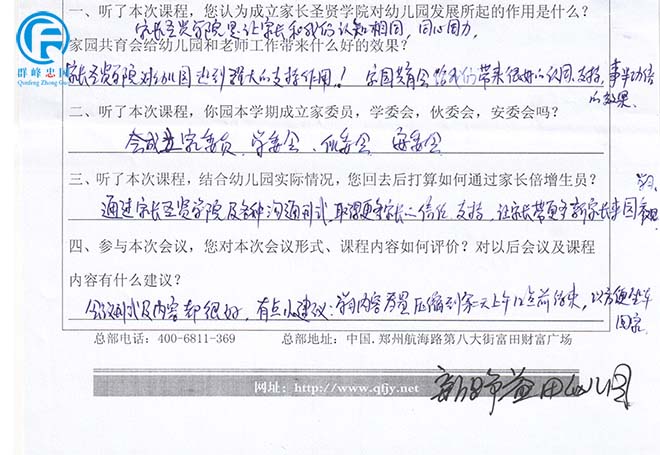 群峰忠国
Qunfeng Zhong Guo
一、听了本次课程，您认为成立家长圣贤学院对幼儿园发展所起的作用是什么？
家长圣贤学院是让家长和我们认知相同，同心同力
家园共育会给幼儿园和老师工作带来什么好的效果？
家长圣贤学院对幼儿园起到强大的支持作用！家园共育会给我们带来很好的认同、支持，事半功倍
的效果
二、听了本次课程，你园本学期成立家委员，学委会，伙委会，安委会吗？
会成立家委员、学委会、伙委会、安委会
三、听了本次课程，结合幼儿园实际情况，您回去后打算如何通过家长倍增生员？
通过家长圣贤学院及各种沟通形式，取得更多家长的信任、支持，让家长带更多新家长来园
四、参与本次会议，您对本次会议形式、课程内容如何评价？对以后会议及课程
内容有什么建议？
会议形式及内容都很好，有点小建议：学习内容尽量压缩到第一天上午12点前结束，以方便坐车
回家
总部电话：400-6811-369 总部地址：中国.郑州航海路第八大街富田财富广场
网址：http://www.qfjy.net
益田幼儿园